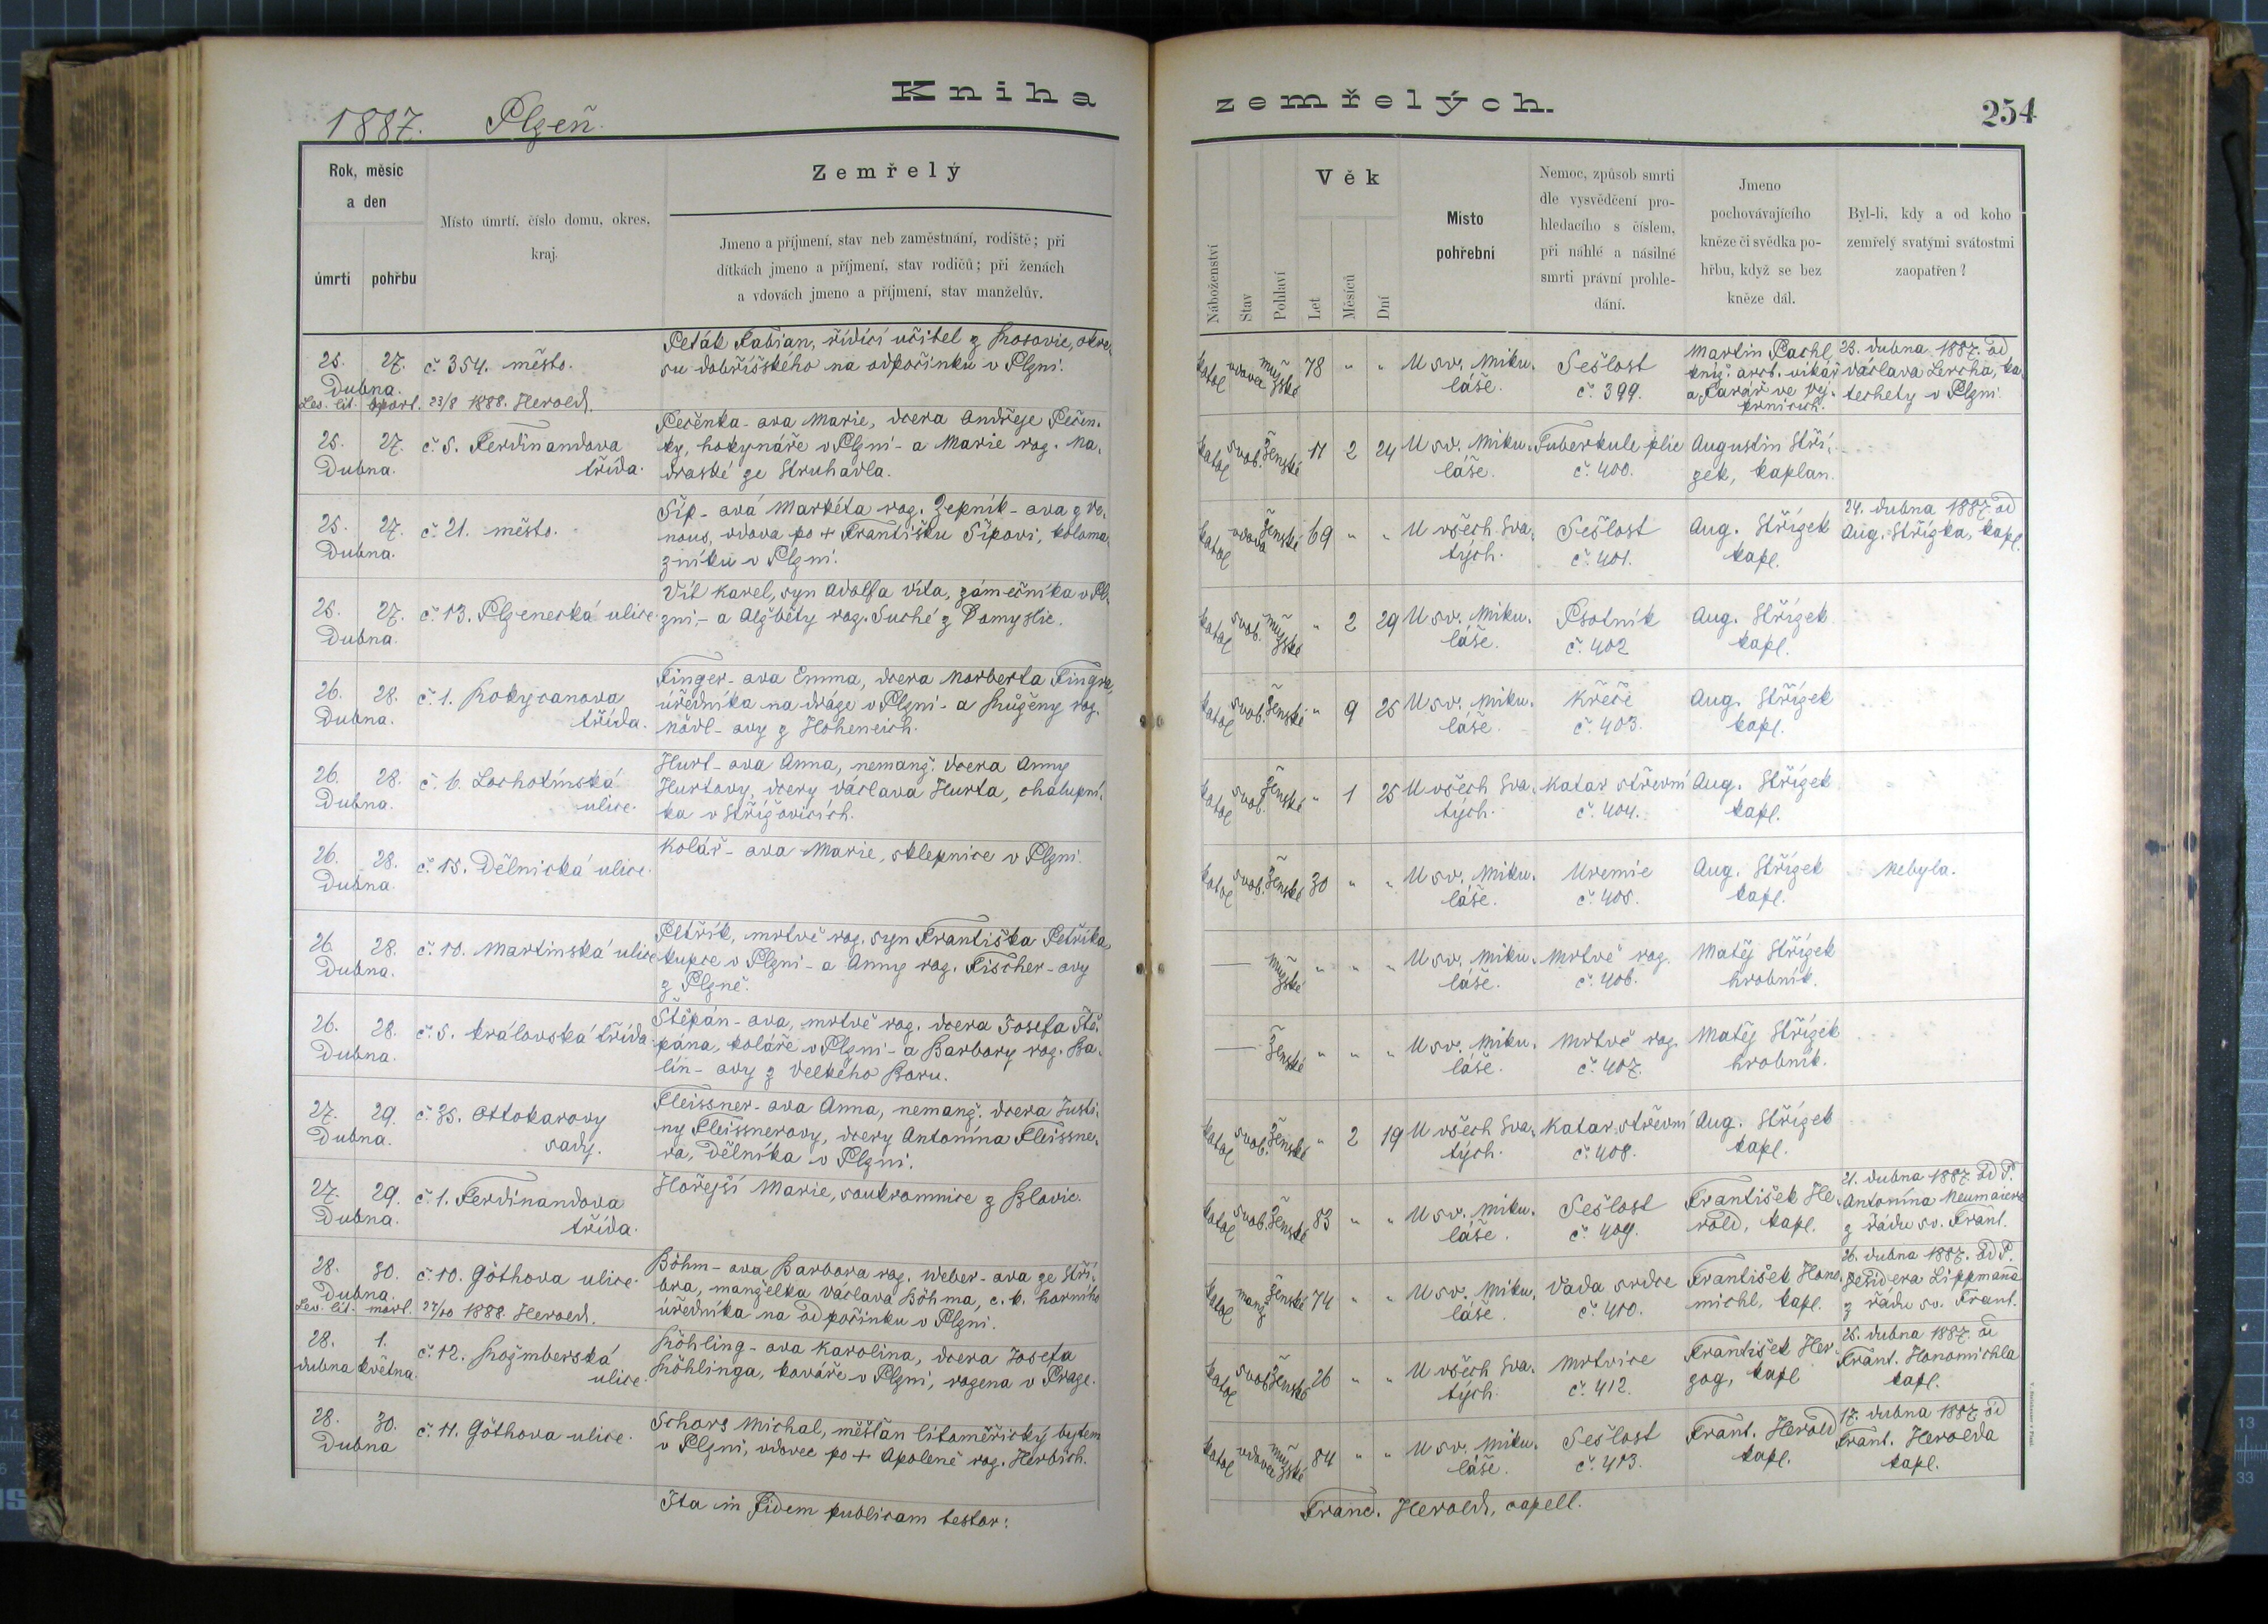 Kniha
1887. Plzeň.
Rok, měsíc
a den
úmrtí
pohřbu
Místo úmrtí, číslo domu, okres,
kraj.
Zemřelý
Jmeno a příjmení, stav neb zaměstnání, rodiště; při
dítkách jmeno a příjmení, stav rodičů; při ženách
a vdovách jmeno a příjmení, stav manželův.
25. 27.
Dubna.
č. 354. město.
23/8 1888. Herold.
Peták Fabian, řídící učitel z Rosovic, okre-
su dobříšského na odpočinku v Plzni.
25. 27.
Dubna.
č. 5. Ferdinandova
třída.
Pečenka-ova Marie, dcera Andřeje Pečen-
ky, hokynáře v Plzni - a Marie roz. Na-
draské ze Struhadla.
25. 27.
Dubna.
č. 21. město.
Šíp-ová Markéta roz. Zepník-ova z
nous, vdova po + Františku Šípovi, koloma-
zníku v Plzni.
25. 27.
Dubna.
č. 13. Plzenecká ulice.
Vít Karel, syn Adolfa Víta, zámečníka v Pl-
zni, - a Alžběty roz. Suché z Domyslic.
26. 28.
Dubna.
č. 1. Rokycanova
třída.
Finger-ova Emma, dcera Norberta Fingra,
úředníka na dráze v Plzni - a Růženy roz.
Nödl-ovy z Hoheneich.
26. 28.
Dubna.
č. 6. Lochotínská
ulice.
Hurt-ova Anna, nemanž. dcera Anny
Hurtovy, dcery Václava Hurta, chalupní-
ka v Střížovicích.
26. 28.
Dubna.
č. 15. Dělnická ulice.
Kolář-ova Marie, sklepnice v Plzni.
26. 28.
Dubna.
č. 10. Martinská ulice
Petřík, mrtvě roz. syn Františka Petříka,
kupce v Plzni - a Anny roz. Fischer-ovy
z Plzně.
26. 28.
Dubna.
č. 5. Královská třída.
Štěpán-ova, mrtvě roz. dcera Josefa Ště-
pána, koláře v Plzni - a Barbory roz. Ba-
lín-ovy z Velkého Boru.
27. 29.
Dubna.
č. 35. Ottokarovy
sady.
Fleissner-ova Anna, nemanž. dcera Justi-
ny Fleissnerovy, dcery Antonína Fleissne-
ra, Dělníka v Plzni.
27. 29.
Dubna.
č. 1. Ferdinandova
třída.
Hořejší Marie, soukromnice z Blovic.
28. 30.
Dubna.
č. 10. Göthova ulice.
Lev. lit. mort. 27/10 1888. Herold.
Böhm-ova Barbora roz. Weber-ova ze Stří-
bra, manželka Václava Böhma, c. k. horního
úředníka na odpočinku v Plzni.
28. 1.
dubna května.
č. 12. Rožmberská
ulice.
Röhling-ova Karolina, dcera Josefa
Röhlinga, kováře v Plzni, rozena v Praze.
28. 30.
Dubna
č. 11. Göthova ulice.
Schors Michal, měšťan litoměřický bytem
v Plzni, vdovec po + Apoleně roz. Herbich.
Ita in Fidem publicam testor:
zemřelých.
254
Náboženství
Stav
Pohlaví
Věk
Let
Měsíců
Dní
Místo
pohřební
Nemoc, způsob smrti
dle vysvědčení pro-
hledacího s číslem,
při náhlé a násilné
smrti právní prohle-
dání.
Jmeno
pochovávajícího
kněze či svědka po-
hřbu, když se bez
kněze dál.
Byl-li, kdy a od koho
zemřelý svatými svátostmi
zaopatřen?
katol vdovec mužské 78 " " U sv. Miku-
láše.
Sešlost
č. 399.
Martin Pachl,
kníž. arcb. vikář
a Farář ve Vej-
prnicích.
23. dubna 1887. od
Václava Lercha, ka-
techety v Plzni.
katol svob. Ženské 17 2 24 U sv. Miku-
láše.
Tuberkule plic
č. 400.
Augustin Stří-
zek, kaplan.
katol vdova Ženské 69 " " U všech Sva-
tých.
Sešlost
č. 401.
Aug. Střízek
kapl.
24. dubna 1887. od
Aug. Střízka, kapl.
katol svob. mužské " 2 29 U sv. Miku-
láše.
Psotník
č. 402
Aug. Střízek
kapl.
katol svob. Ženské " 9 25 U sv. Miku-
láše.
Křeče
č. 403.
Aug. Střízek
kapl.
katol svob. Ženské " 1 25 U všech Sva-
tých.
Katar střevní
č. 404.
Aug. Střízek
kapl.
katol svob. Ženské 30 " " U sv. Miku-
láše.
Uremie
č. 405.
Aug. Střízek
kapl.
Nebyla.
— mužské " " " U sv. Miku-
láše.
Mrtvě roz.
č. 406.
Matěj Střízek
hrobník.
— Ženské " " " U sv. Miku-
láše.
Mrtvě roz.
č. 407.
Matěj Střízek
hrobník.
katol svob. Ženské " 2 19 U všech Sva-
tých.
Katar střevní
č. 408.
Aug. Střízek
kapl.
katol svob. Ženské 83 " " U sv. Miku-
láše.
Sešlost
č. 409.
František He-
rold, kapl.
21. dubna 1887. od P.
Antonína Neumaiera
z řádu sv. Frant.
katol manž Ženské 74 " " U sv. Miku-
láše.
Vada srdce
č. 410.
František Hono-
michl, kapl.
26. dubna 1887. od P.
Desidera Lippmanna
z řádu sv. Frant.
katol svob. Ženské 26 " " U všech Sva-
tých.
Mrtvice
č. 412.
František Her-
zog, kapl
25. dubna 1887. od
Frant. Honomichla
kapl.
katol vdovec mužské 84 " " U sv. Miku-
láše.
Sešlost
č. 413.
Frant. Herold
kapl.
17. dubna 1887. od
Frant. Herolda
kapl.
Franc. Herold, capell.